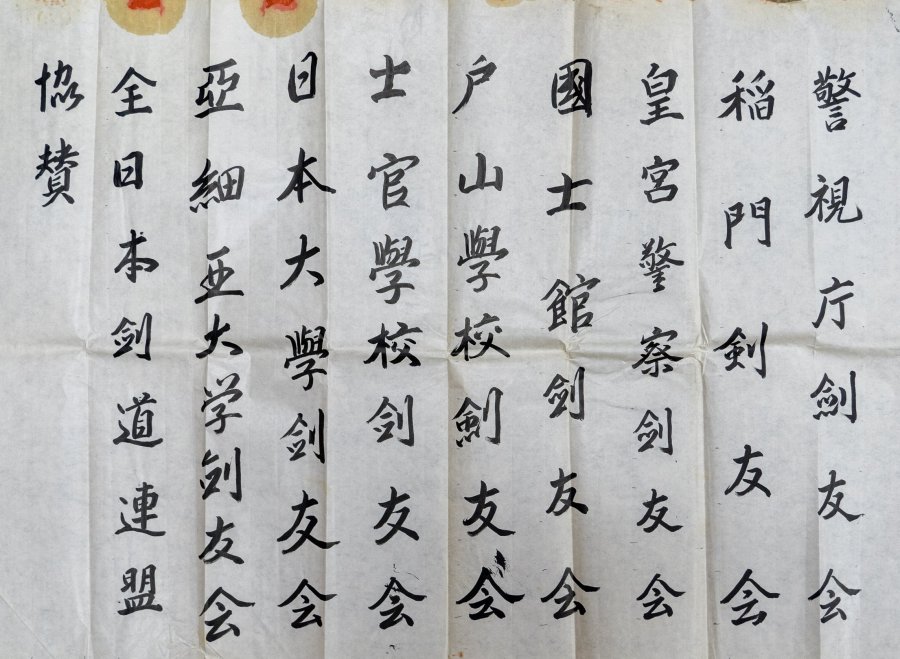 警視庁劍友会
稲門剣友会
皇宮警察剑友会
國士館剑友会
戸山學校劍友会
士官學校剑友会
日本大學剑友会
亞細亜大学剑友会
全日本剑道連盟
協賛